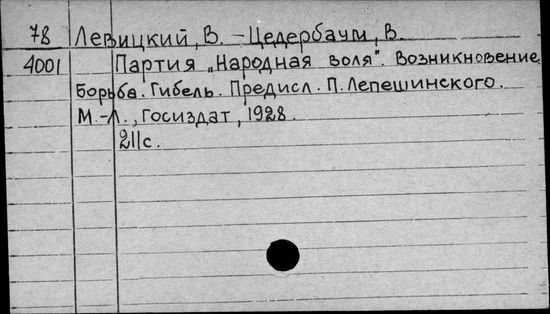 78 Левицкий, В. – Цедербаум, В.
4001 Партия „Народная воля". Возникновение.
Борьба. Гибель. Предисл. П. Лепешинского.
М.-Л., Госиздат, 1928.
211с.